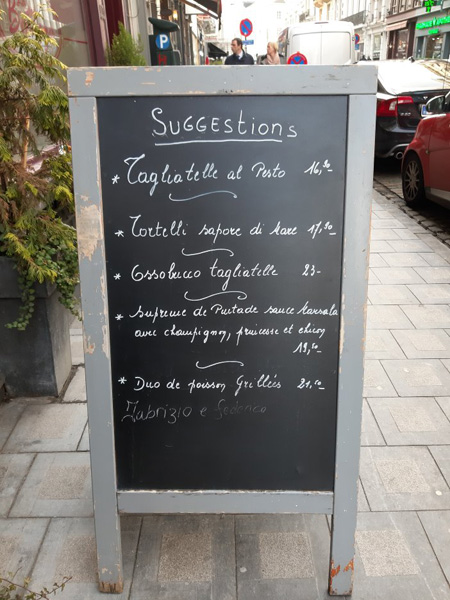 Suggestions
* Tagliatelle al Pesto 16,50-
* Tortelli sapore di Mare 17,90-
* Ossobucco tagliatelle 23-
* Supreme de Pintade sauce Marsala
avec champignon, princesse et chicon
19,50-
* Duo de poisson Grillées 21,50-
Fabrizio e Federico
P